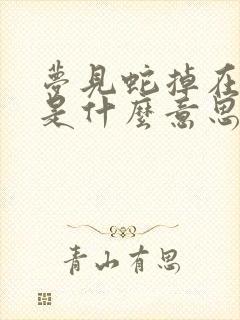 夢見蛇掉在
是什麼意思
青山有思